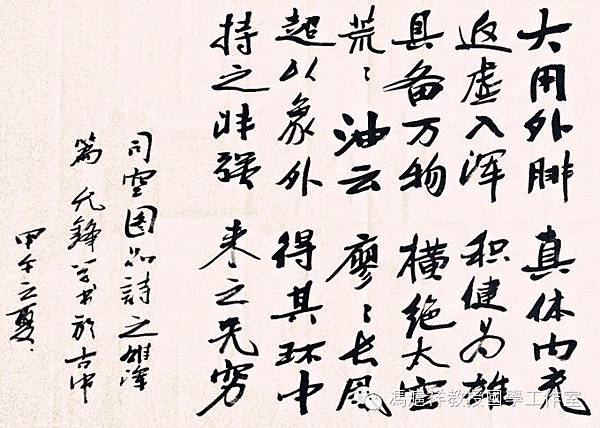 大用外腓 真体内充
返虚入浑 积健为雄
具备万物 横绝太空
荒々油云 寥々长风
超以象外 得其环中
持之非强 来之无穷
司空图品詩之雄浑
篇 书於古中
甲午之夏
教授國學工作室